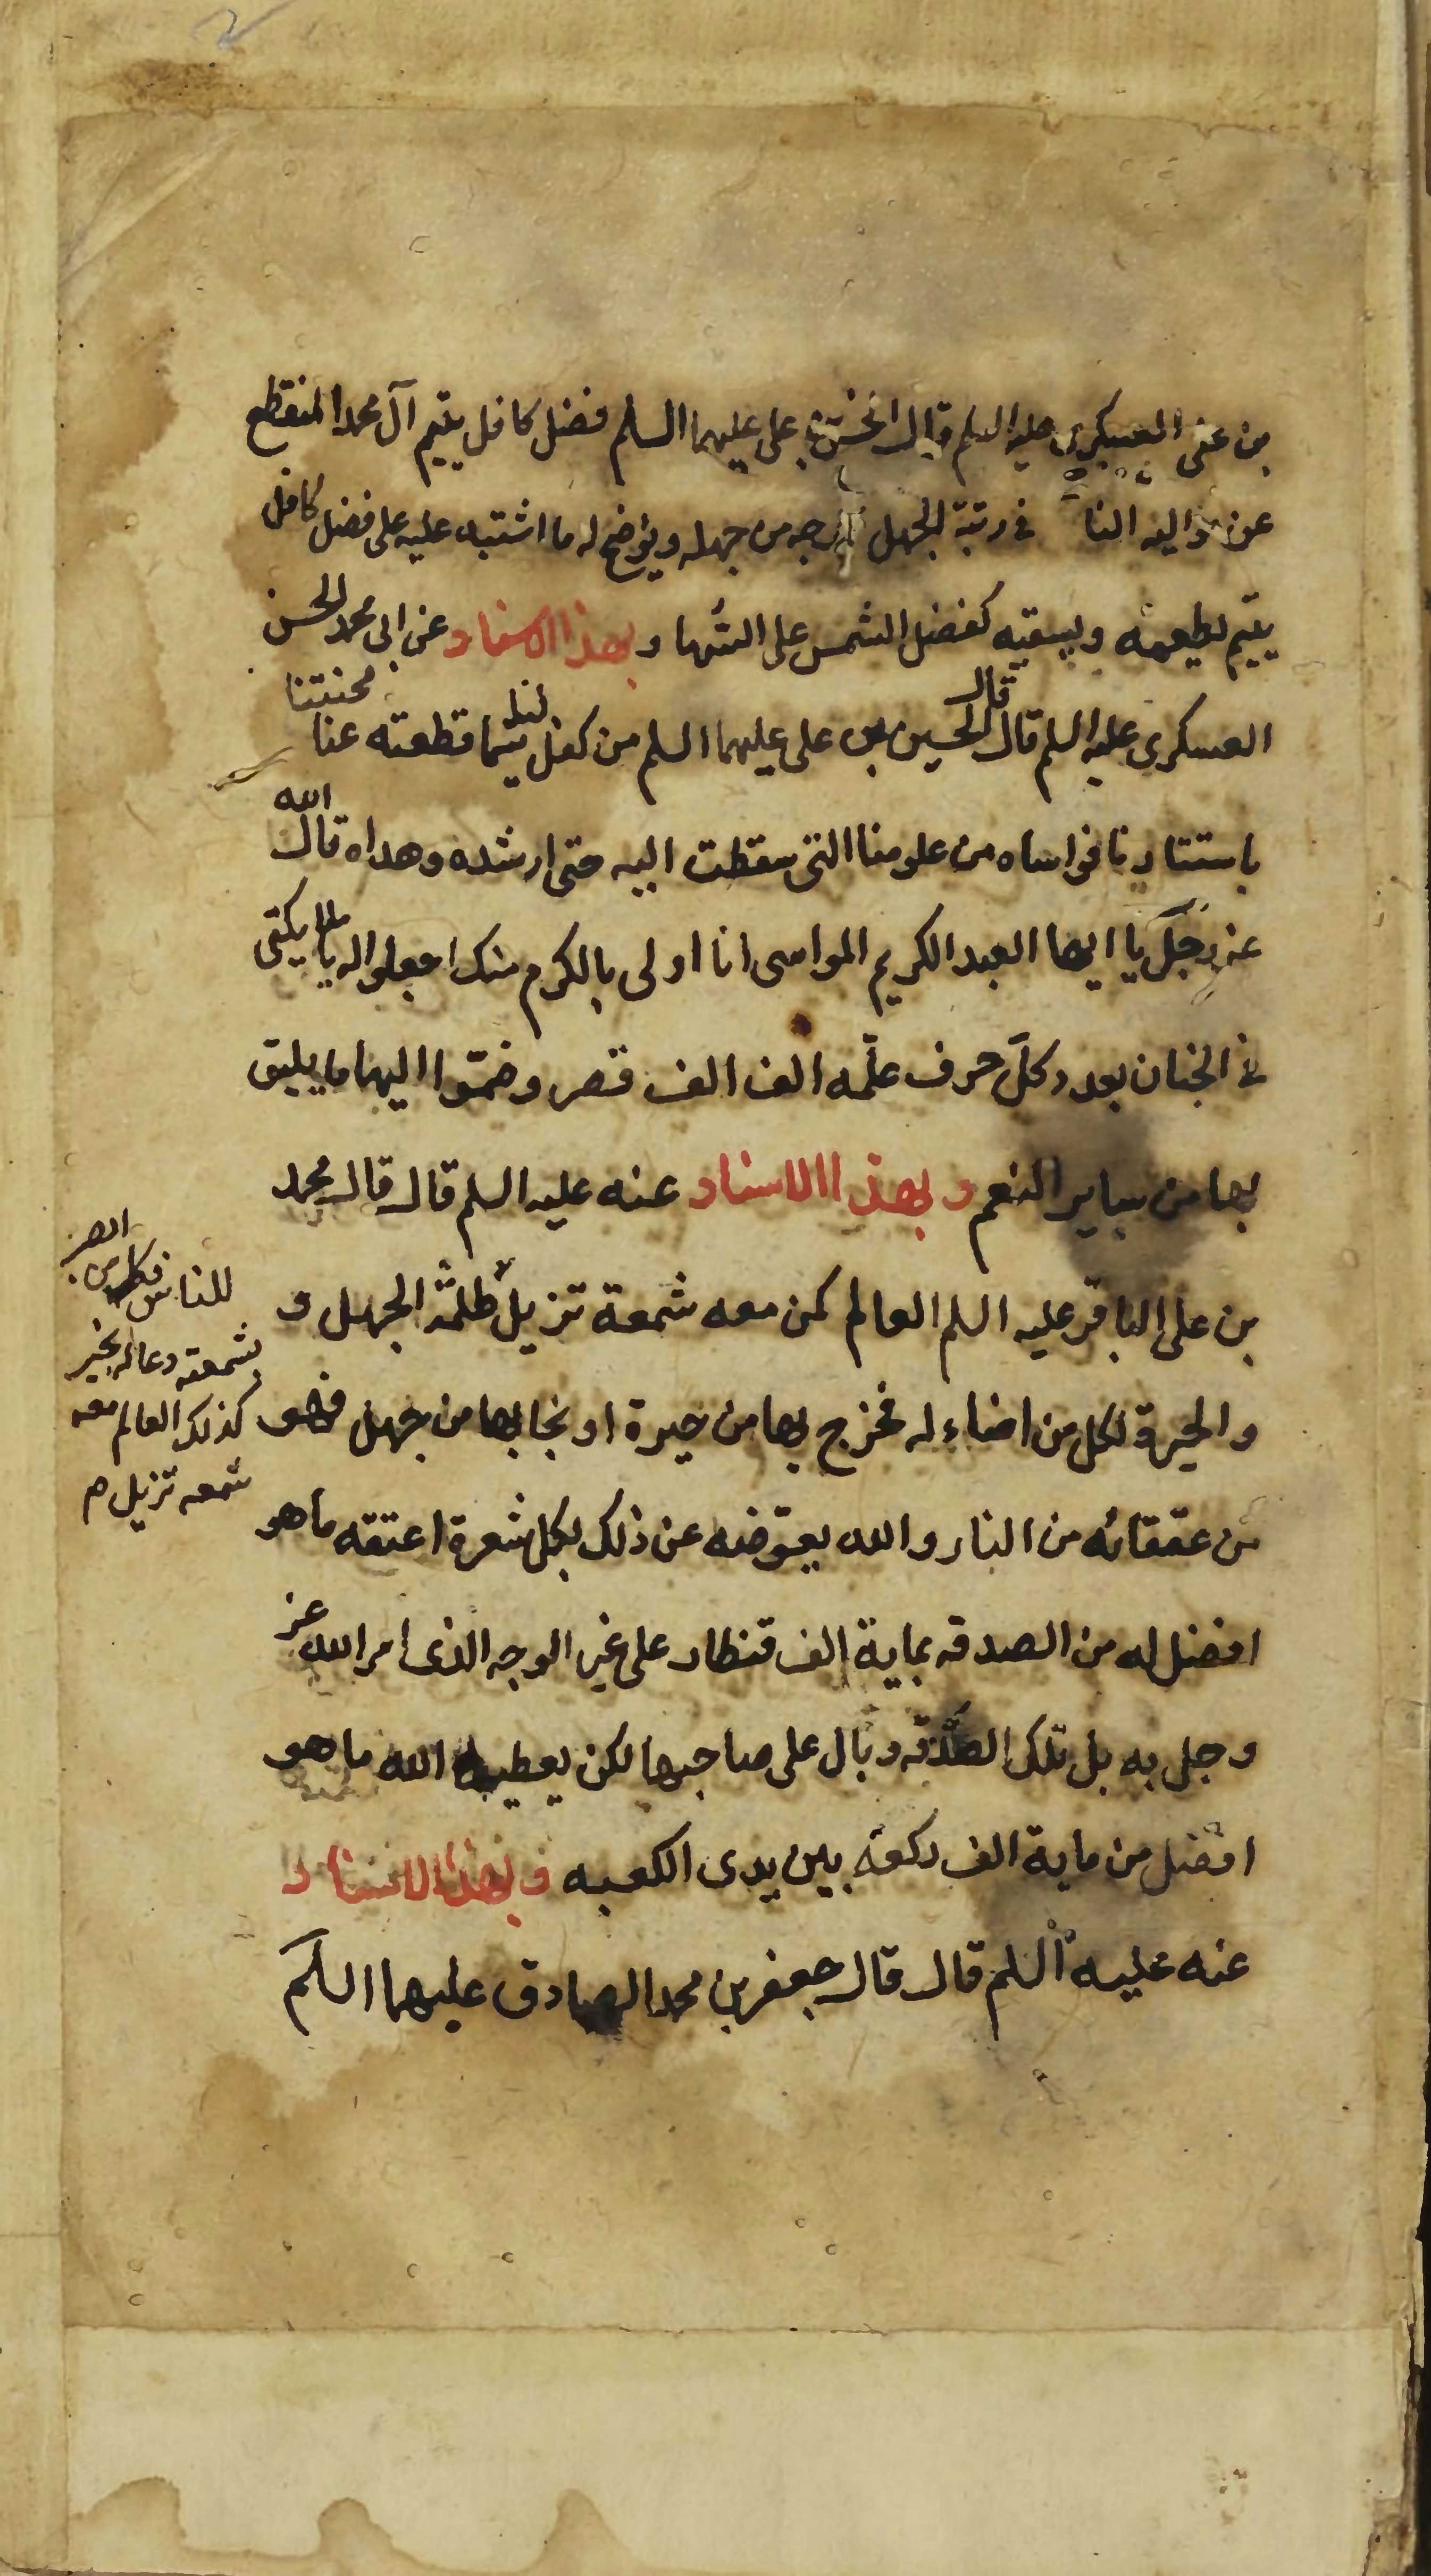 بن على العسكرى عليه السلم قال الحسن بن على عليهما السلم فضل كافل يتيم آل محمد المنقطع
عن مواليه النا فى رتبة الجهل يخرجه من جهله ويوضح له ما اشتبه عليه على فضل كافل
يتيم يطعمه ويسقيه كفضل الشمس على السُها وبهذا الاسناد عن ابى محمد الحسن
العسكرى عليه السلم قال قال الحسين بن على عليهما السلم من كفل لنا يتيما قطعته عنا محنتنا
باستتارنا فواساه من علومنا التى سقطت اليه حتى ارشده وهداه قال الله
عز وجل يا ايها العبد الكريم المواسى انا اولى بالكرم منك اجعلوا له يا ملايكتى
فى الجنان بعدد كلّ حرف علّمه الف الف قصر وضمّوا اليها ما يليق
بها من ساير النعم وبهذا الاسناد عنه عليه السلم قال قال محمد
بن على الباقر عليه السلم العالم كمن معه شمعة تزيل ظلمة الجهل و
والحيرة لكل من اضاء له فخرج بها من حيرة او نجا بها من جهل فهو
من عتقائه من النار والله يعوّضه عن ذلك بكل شعرة اعتقه ما هو
افضل له من الصدقه بماية الف قنطار على غير الوجه الذى امر الله عز
وجل به بل تلك الصّدقه وبال على صاحبها لكن يعطيه الله ما هو
افضل من ماية الف ركعة بين يدى الكعبه وبهذا الاسناد
عنه عليه السلم قال قال جعفر بن محمد الصادق عليهما السلم
للناس فكل من ابصر
بشمعته دعا له بخير
كذلك العالم معه
شمعه تزيل م